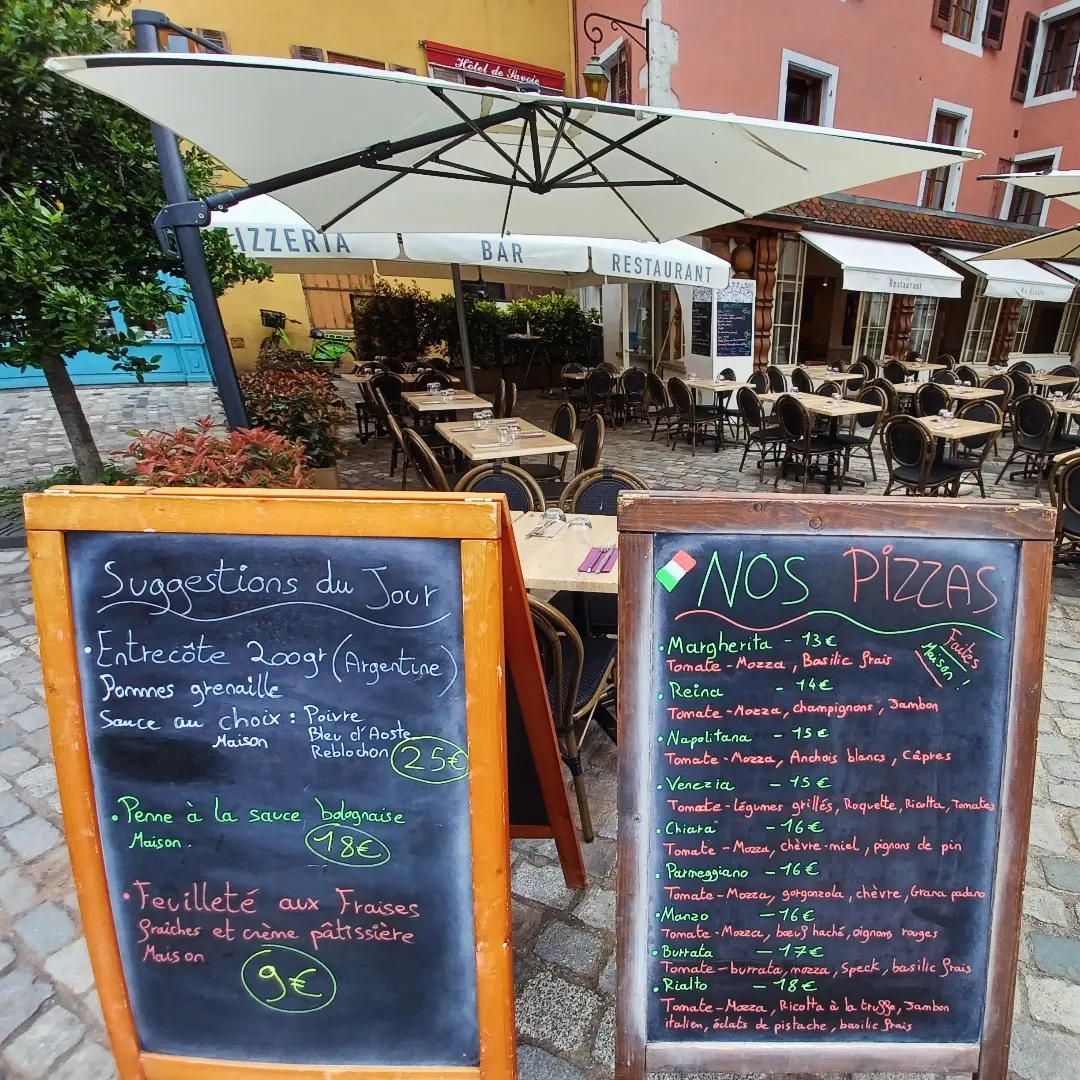 Hôtel de Savoie
IZZERIA
BAR
RESTAURANT
Restaurant
Suggestions du Jour
• Entrecôte 200gr (Argentine)
Pommes grenaille
Sauce au choix : Poivre
Maison
Bleu d'Aoste
Reblochon
25€
• Penne à la sauce bolognaise
Maison.
18€
• Feuilleté aux Fraises
fraîches et crème pâtissière
Maison
9€
NOS PIZZAS
Faites
Maison !
• Margherita - 13€
Tomate-Mozza, Basilic frais
• Reina - 14€
Tomate-Mozza, champignons, Jambon
• Napolitana - 15€
Tomate-Mozza, Anchois blancs, Câpres
• Venezia - 15€
Tomate-légumes grillés, Roquette, Ricotta, Tomates
• Chiara - 16€
Tomate-Mozza, chèvre-miel, pignons de pin
• Parmeggiano - 16€
Tomate-Mozza, gorgonzola, chèvre, Grana padano
• Manzo - 16€
Tomate-Mozza, bœuf haché, oignons rouges
• Burrata - 17€
Tomate-burrata, mozza, Speck, basilic frais
• Rialto - 18€
Tomate-Mozza, Ricotta à la truffe, Jambon
italien, éclats de pistache, basilic frais